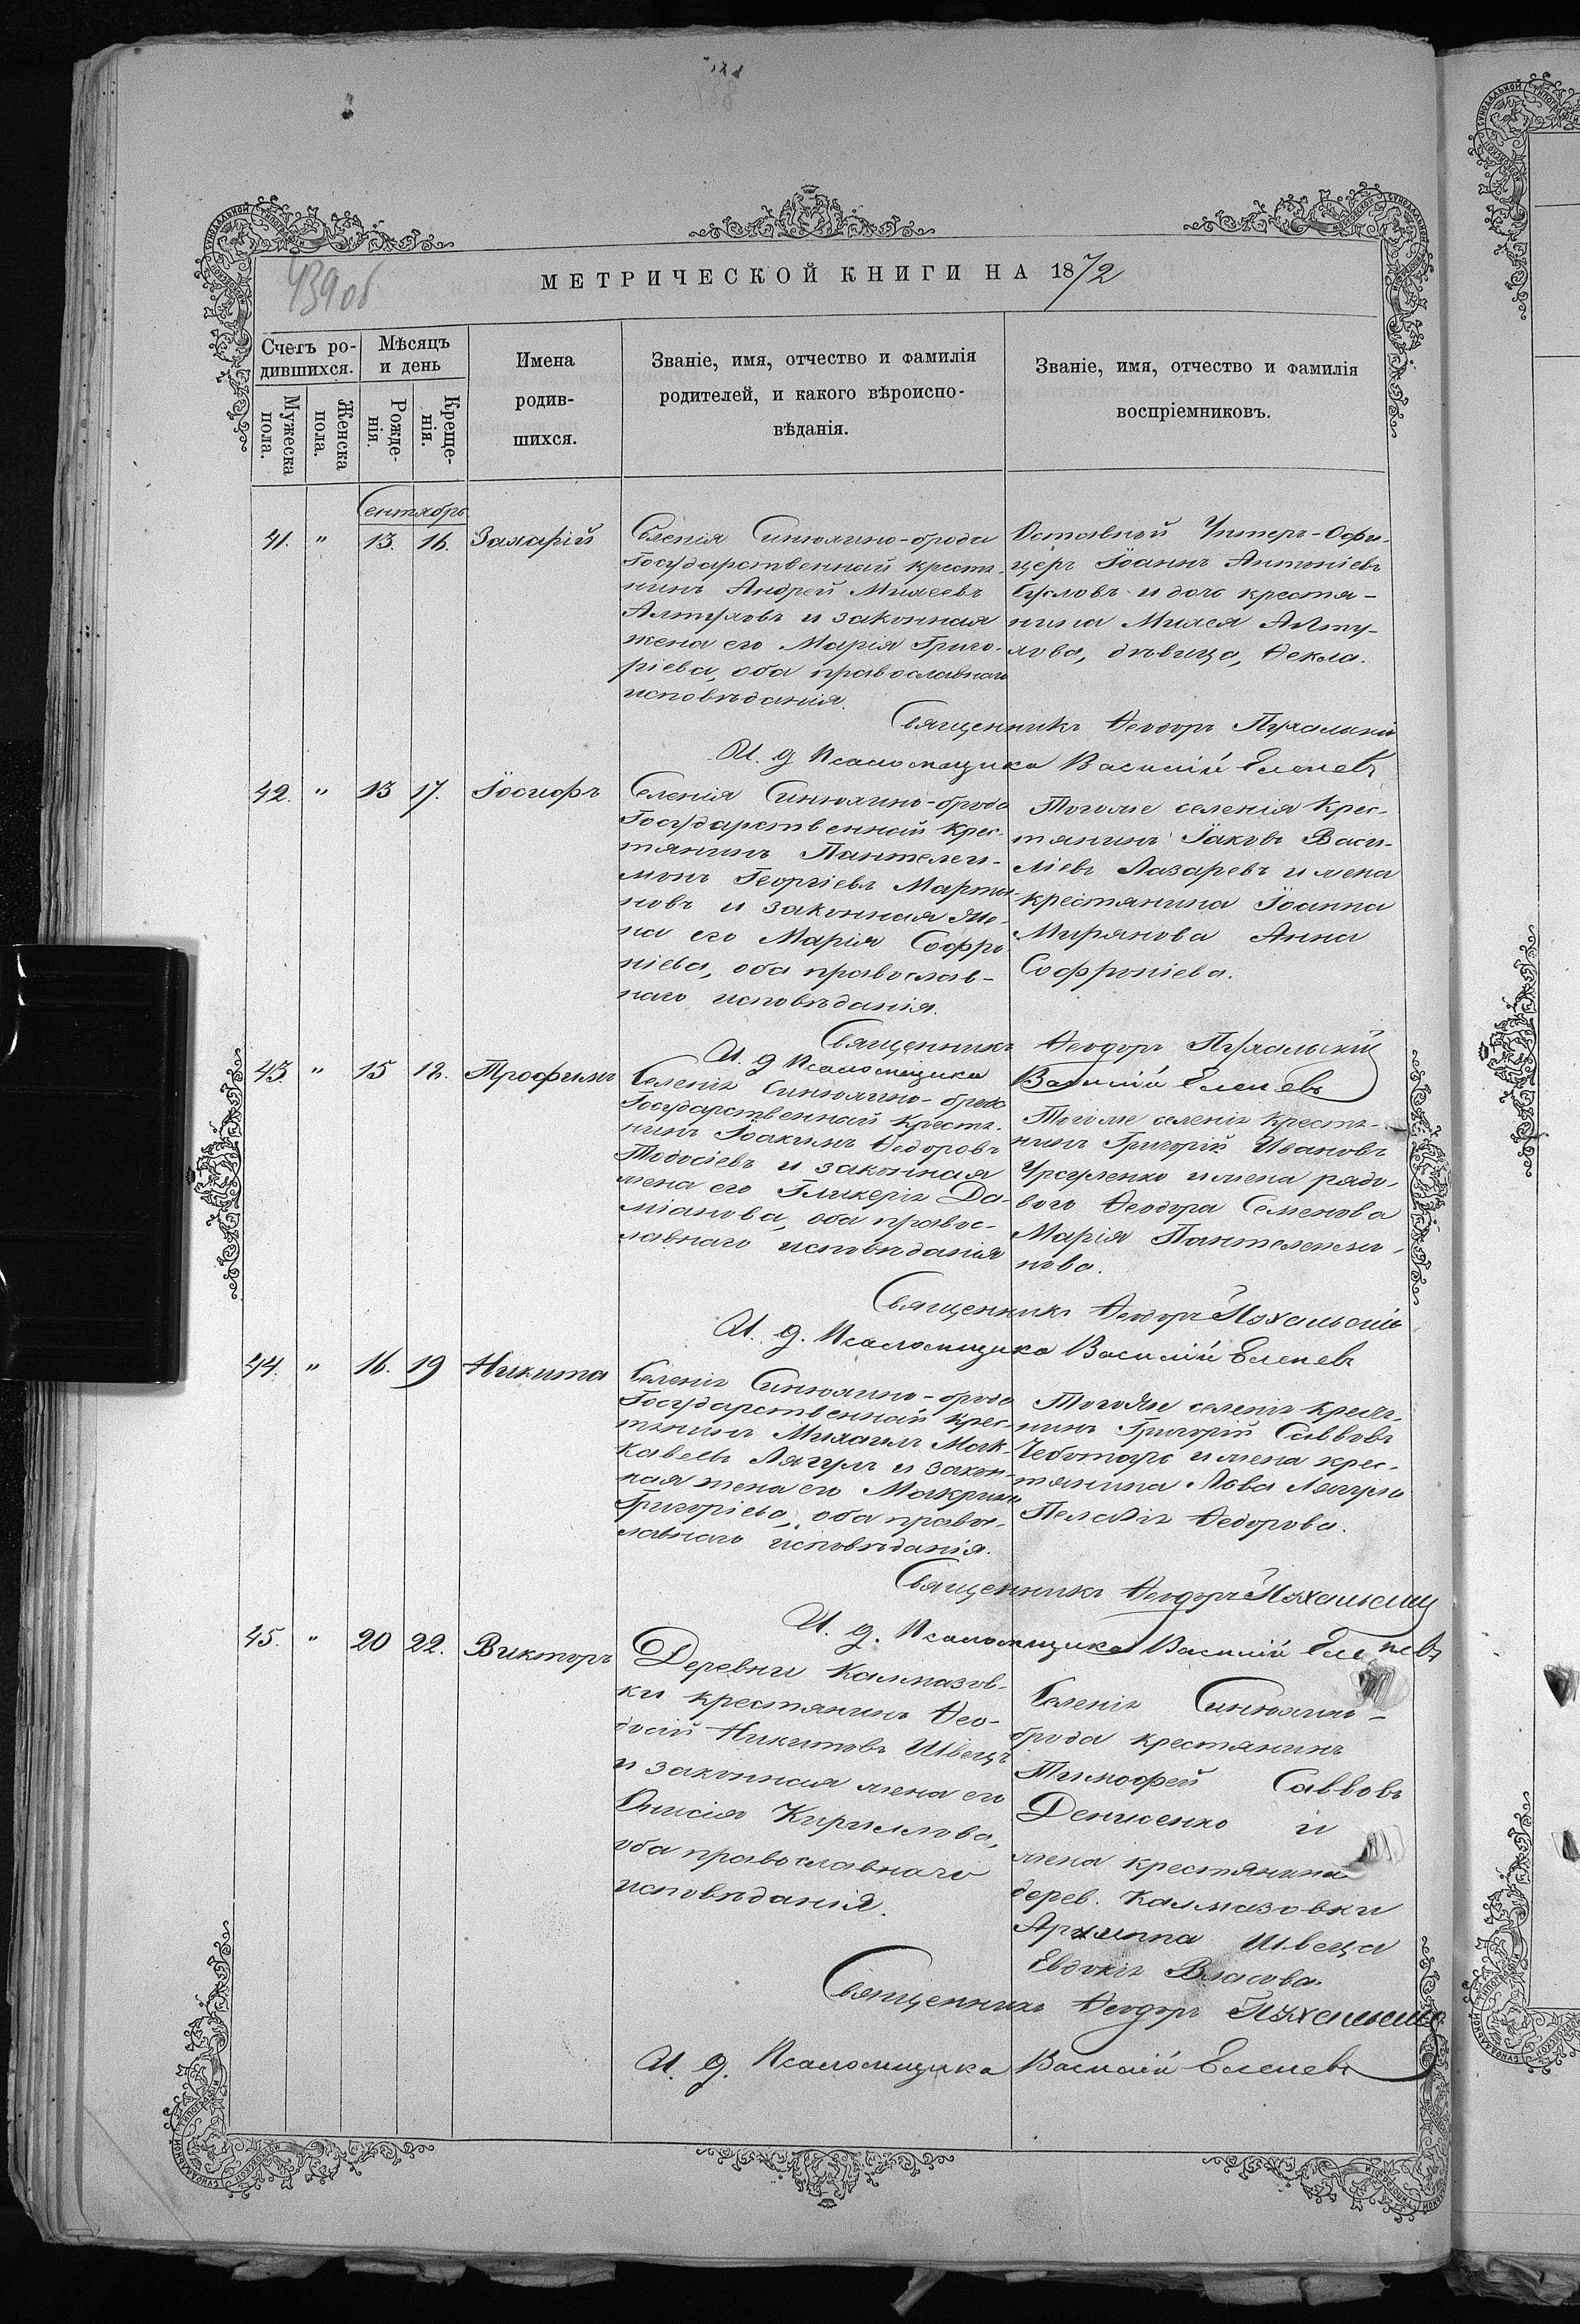 439об
МЕТРИЧЕСКОЙ КНИГИ НА 1872
Счетъ ро-
дившихся.
Мѣсяцъ
и день
Мужеска
пола.
Женска
пола.
Рожде-
нія.
Креще-
нія.
Имена
родив-
шихся.
Званіе, имя, отчество и фамилія
родителей, и какого вѣроиспо-
вѣданія.
Званіе, имя, отчество и фамилія
воспріемниковъ.
Сентябрь
41. " 13. 16. Захарій
Селенія Синюхино-брода
Государственный крестя-
нинъ Андрей Михеевъ
Алтуховъ и законная
жена его Марія Григо-
ріева, оба православнаго
исповѣданія.
Отставной Унтеръ-Офи-
церъ Іоаннъ Антоніевъ
и дочь крестя-
нина Михея Алту-
хова, дѣвица, Ѳекла.
Священникъ Ѳеодоръ Пухальскій
И. д. Псаломщика Василій Еленевъ
42. " 13 17. Іосифъ
Селенія Синюхино-брода
Государственный крес-
тянинъ Пантелеи-
монъ Георгіевъ Марты-
новъ и законная же-
на его Марія Софро-
ніева, оба православ-
наго исповѣданія.
Тогоже селенія крес-
тянинъ Іаковъ Васи-
ліевъ Лазаревъ и жена
крестянина Іоанна
Мирянова Анна
Софроніева.
Священникъ Ѳеодоръ Пухальскій
И. д Псаломщика Василій Еленевъ
43. " 15 18. Трофимъ
Селенія Синюхино-брода
Государственный крестя-
нинъ Іоакимъ Ѳедоровъ
Тодосіевъ и законная
жена его Гликерія Да-
міанова, оба правос-
лавнаго исповѣданія
Тогоже селенія крестя-
нинъ Григорій Ивановъ
Урсуленко и жена рядо-
вого Ѳеодора Семенова
Марія Пантелеимо-
нова.
Священникъ Ѳеодоръ Пухальскій
И. д. Псаломщика Василій Еленевъ
44. " 16. 19 Никита
Селенія Синюхино-брода
Государственный крес-
тянинъ Михаилъ Мак-
кавеевъ Лягулъ и закон-
ная жена его Макрина
Григоріева, оба правос-
лавнаго исповѣданія.
Тогоже селенія крестя-
нинъ Григорій Саввовъ
Чеботарь и жена крес-
тянина Льва Лягула
Пелагія Ѳедорова.
Священникъ Ѳеодоръ Пухальскій
И. д. Псаломщика Василій Еленевъ
45. " 20 22. Викторъ
Деревни Калмазов-
ки крестянинъ Ѳео-
досій Никитовъ Швецъ
и законная жена его
Онисія Кириллова,
оба православнаго
исповѣданія.
Селенія Синюхино-
брода крестянинъ
Тимофей Саввовъ
Денисенко и
жена крестянина
дерев. Калмазовки
Архиппа Швеца
Евдокія Власова.
Священникъ Ѳеодоръ Пухальскій
И. д. Псаломщика Василій Еленевъ